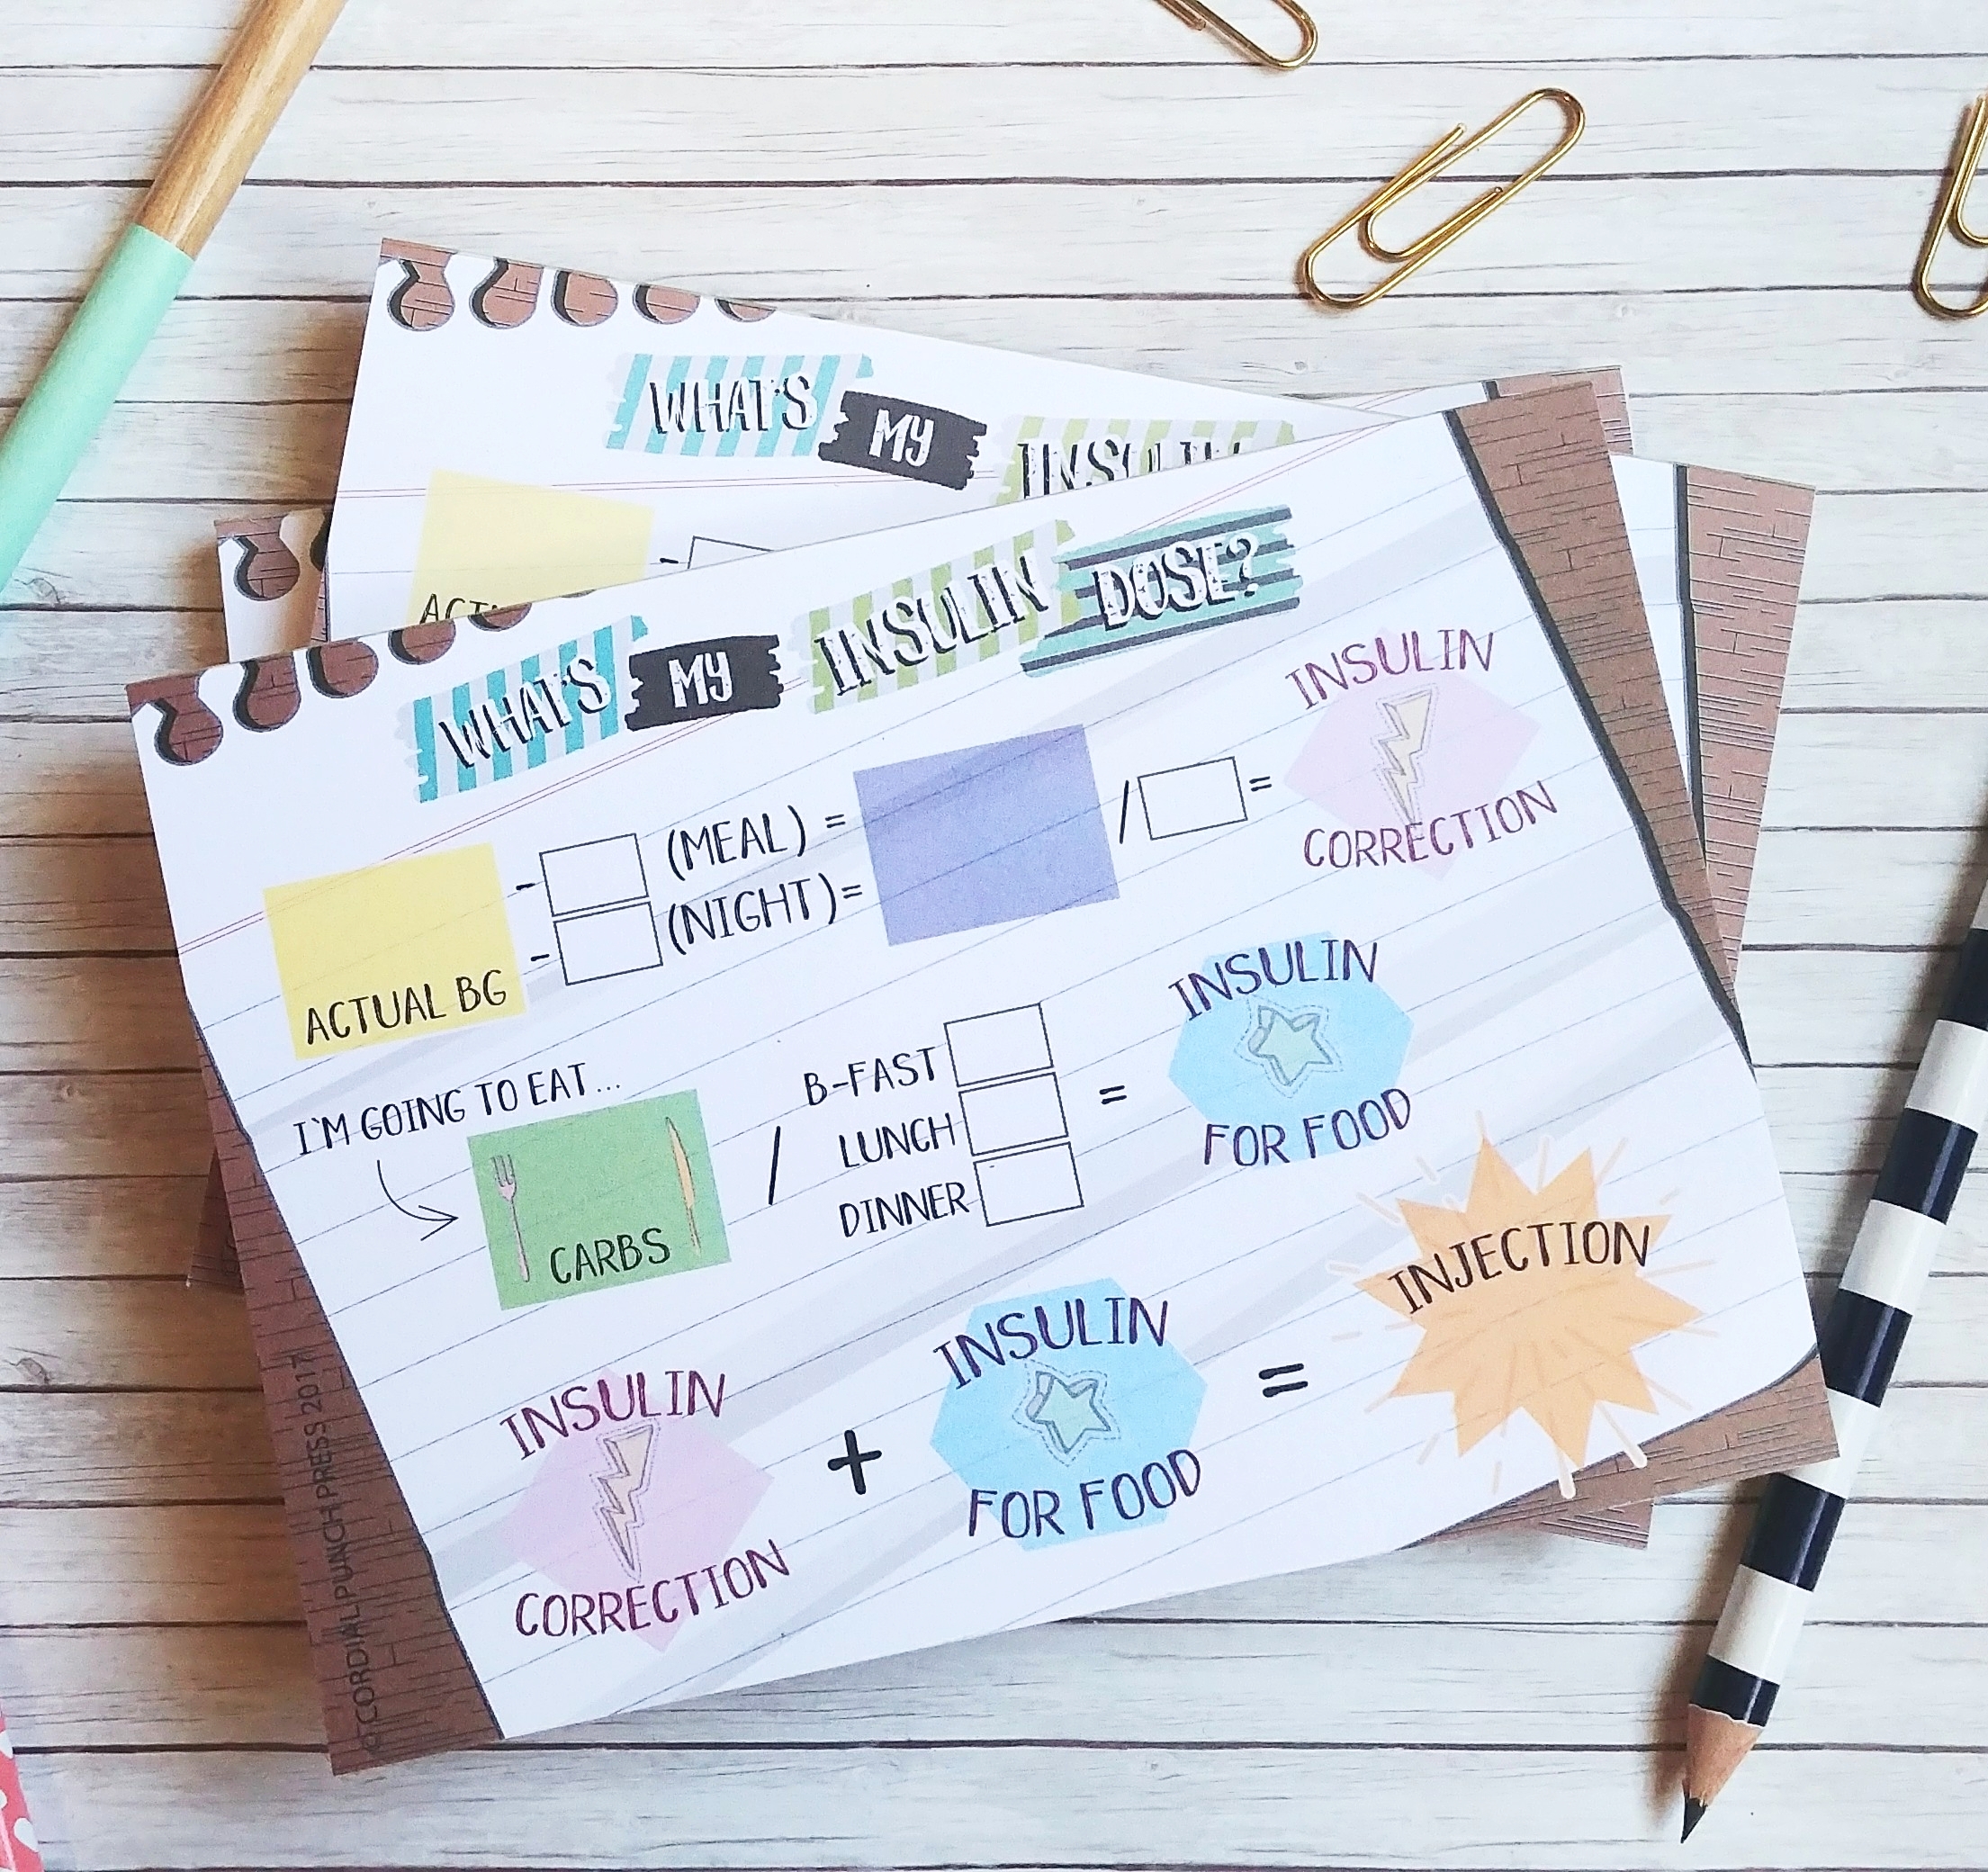 WHAT'S MY INSULIN
WHAT'S MY INSULIN DOSE?
ACTUAL BG
- (MEAL) =
- (NIGHT) =
/ =
INSULIN
CORRECTION
I'M GOING TO EAT...
CARBS
/
B-FAST
LUNCH
DINNER
=
INSULIN
FOR FOOD
INSULIN
CORRECTION
+
INSULIN
FOR FOOD
=
INJECTION
CORDIALPUNCH PRESS 2017